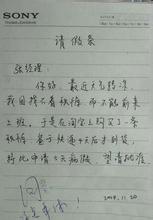 SONY
请假条
张经理：
你好，最近天气转凉
我因找不着秋裤而不能前来
上班，于是在淘宝上购买了一条
秋裤，基于快递4天后才到货，
特此申请4天病假，望请批准
同
2014.11.20